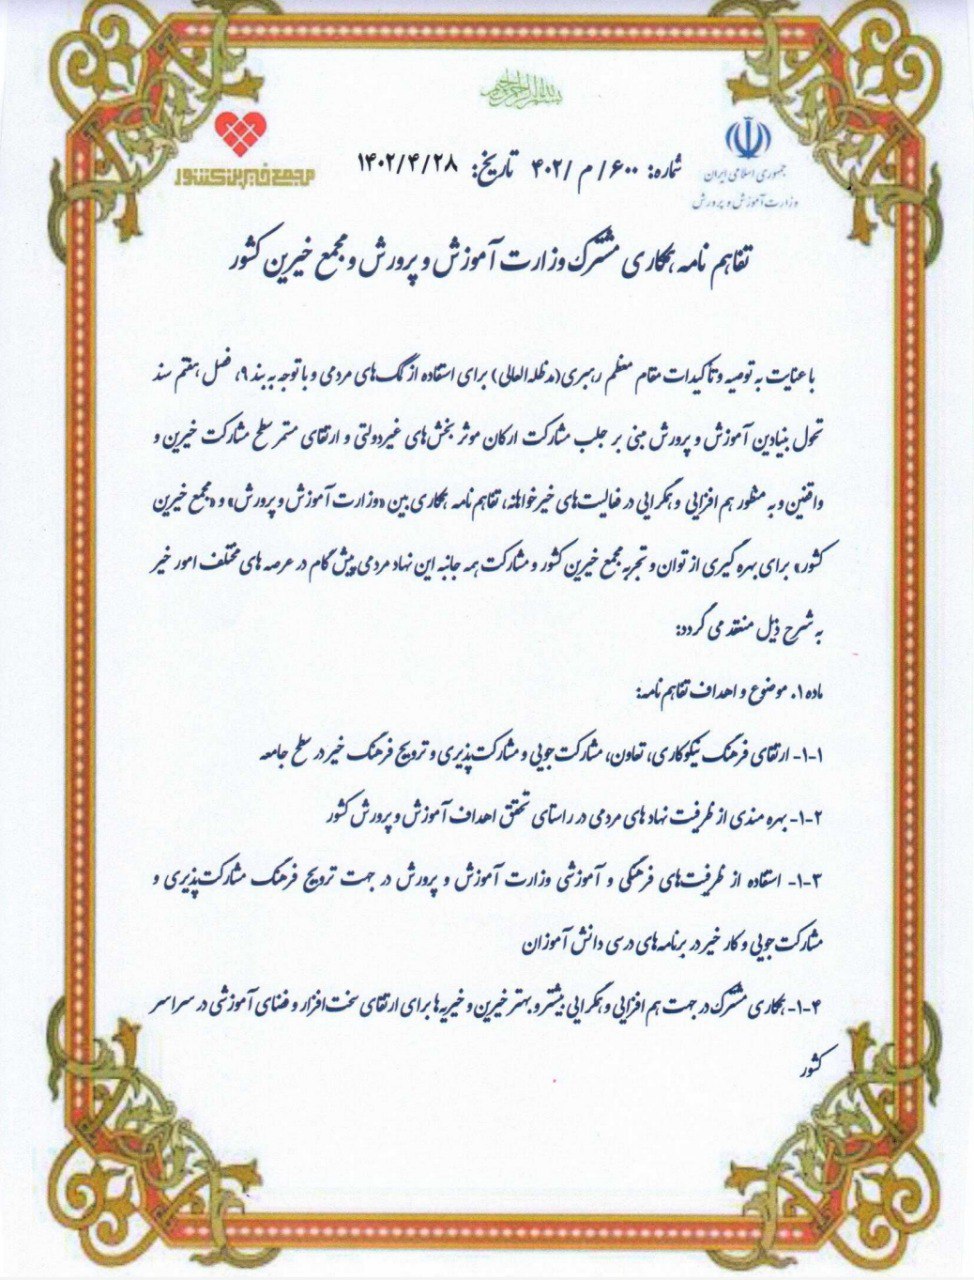 بسم الله الرحمن الرحیم
جمهوری اسلامی ایران
وزارت آموزش و پرورش
مجمع خیرین کشور
شماره: ۶۰۰/م/۴۰۲ تاریخ: ۱۴۰۲/۴/۲۸
تفاهم نامه همکاری مشترک وزارت آموزش و پرورش و مجمع خیرین کشور
با عنایت به توصیه و تاکیدات مقام معظم رهبری(مدظله العالی) برای استفاده از کمک‌های مردمی و با توجه به بند ۹، فصل هفتم سند
تحول بنیادین آموزش و پرورش مبنی بر جلب مشارکت ارکان موثر بخش‌های غیردولتی و ارتقای مستمر سطح مشارکت خیرین و
واقفین و به منظور هم افزایی و همگرایی در فعالیت‌های خیرخواهانه، تفاهم نامه همکاری بین «وزارت آموزش و پرورش» و «مجمع خیرین
کشور» برای بهره گیری از توان و تجربه مجمع خیرین کشور و مشارکت همه جانبه این نهاد مردمی پیش گام در عرصه های مختلف امور خیر
به شرح ذیل منعقد می گردد:
ماده ۱. موضوع و اهداف تفاهم نامه:
۱-۱- ارتقای فرهنگ نیکوکاری، تعاون، مشارکت جویی و مشارکت‌پذیری و ترویج فرهنگ خیر در سطح جامعه
۱-۲- بهره مندی از ظرفیت نهاد های مردمی در راستای تحقق اهداف آموزش و پرورش کشور
۱-۳- استفاده از ظرفیت‌های فرهنگی و آموزشی وزارت آموزش و پرورش در جهت ترویج فرهنگ مشارکت‌پذیری و
مشارکت جویی و کار خیر در برنامه‌های درسی دانش آموزان
۱-۴- همکاری مشترک در جهت هم افزایی و همگرایی بیشتر و بهتر خیرین و خیریه‌ها برای ارتقای سخت‌افزار و فضای آموزشی در سراسر
کشور